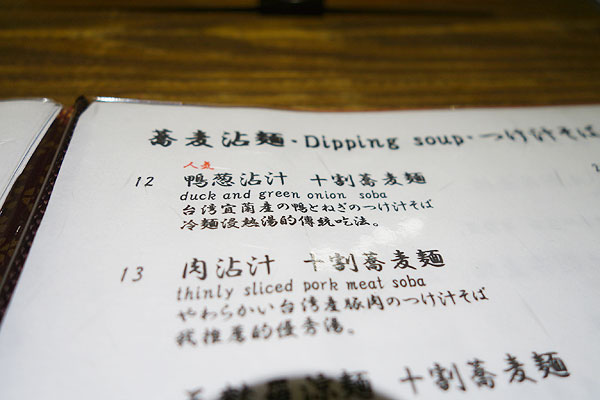 蕎麦沾麵・Dipping soup・つけ汁そば
人気
12 鴨葱沾汁 十割蕎麦麵
duck and green onion soba
台湾宜蘭産の鴨とねぎのつけ汁そば
冷麵浸熱湯的傳統吃法。
13 肉沾汁 十割蕎麦麵
thinly sliced pork meat soba
やわらかい台湾産豚肉のつけ汁そば
我推薦的優秀湯。
十割蕎麦麵